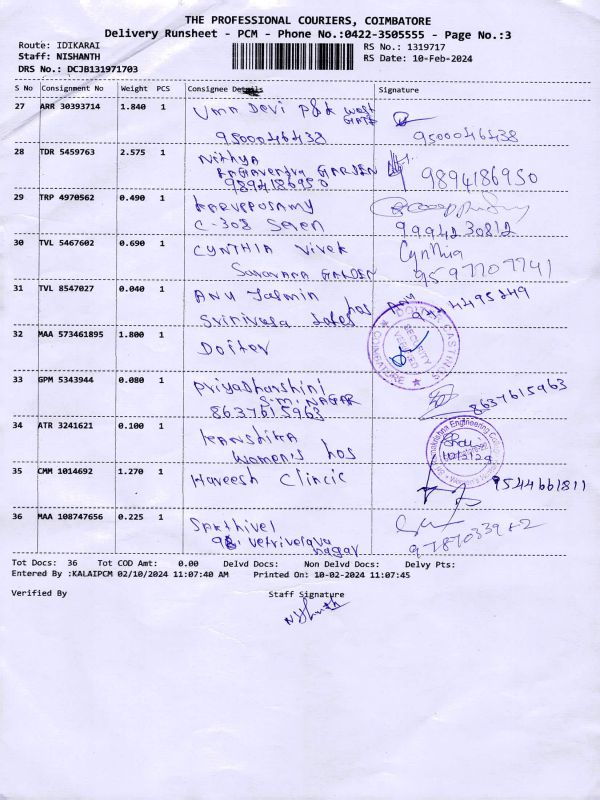 THE PROFESSIONAL COURIERS, COIMBATORE
Delivery Runsheet - PCM - Phone No.:0422-3505555 - Page No.:3
Route: IDIKARAI
RS No.: 1319717
Staff: NISHANTH
RS Date: 10-Feb-2024
DRS No.: DCJB131971703
S No Consignment No Weight PCS Consignee Details Signature
27 ARR 30393714 1.840 1 Uma Devi P&K West
GATE
9500046438 9500046438
28 TDR 5459763 2.575 1 Nithya
Ragavendra GARDEN
9894186950 9894186950
29 TRP 4970562 0.490 1 Karuppusamy
C-308 Seven 9994230812
30 TVL 5467602 0.690 1 CYNTHIA Vivek Cynthia
Saravana GARDEN 9597707741
31 TVL 8547027 0.040 1 ANU Jasmin hos Anu
Srinivasa
32 MAA 573461895 1.800 1 Doiter
SECURITY
COIMBATORE
33 GPM 5343944 0.080 1 Priyadharshini
S.M. NAGAR
8637615963 8637615963
34 ATR 3241621 0.100 1 KANSHIKA
Women's hos
35 CMM 1014692 1.270 1 Haveesh Clincic 9544661811
36 MAA 108747656 0.225 1 Spkthivel
Vetrivelava
nagar
Tot Docs: 36 Tot COD Amt: 0.00 Delvd Docs: Non Delvd Docs: Delvy Pts:
Entered By :KALAIPCM 02/10/2024 11:07:40 AM Printed On: 10-02-2024 11:07:45
Verified By Staff Signature